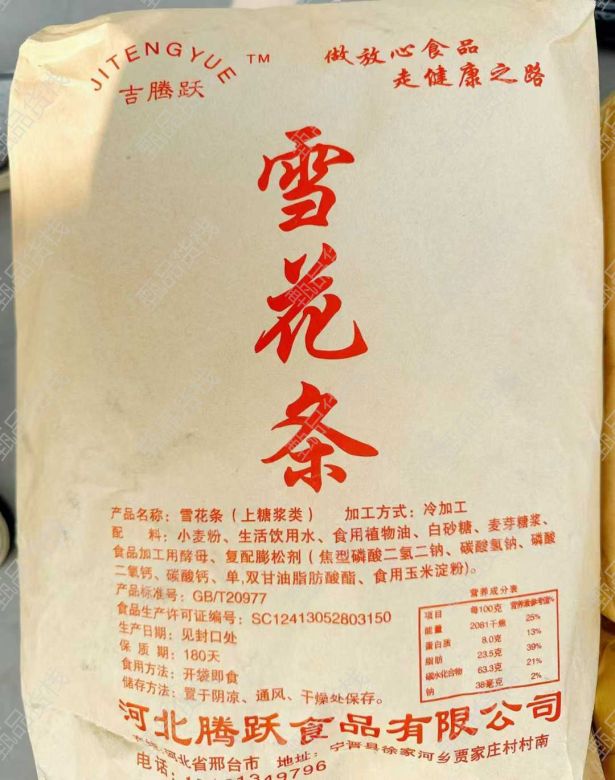 JITENGYUE TM
吉腾跃
做放心食品
走健康之路
雪花条
产品名称：雪花条（上糖浆类） 加工方式：冷加工
配 料：小麦粉、生活饮用水、食用植物油、白砂糖、麦芽糖浆、
食品加工用酵母、复配膨松剂（焦型磷酸二氢二钠、碳酸氢钠、磷酸
二氢钙、碳酸钙、单,双甘油脂肪酸酯、食用玉米淀粉）。
产品标准号：GB/T20977
食品生产许可证编号：SC12413052803150
生产日期：见封口处
保 质 期：180天
食用方法：开袋即食
储存方法：置于阴凉、通风、干燥处保存。
营养成分表
项目 每100克 营养素参考值%
能量 2081千焦 25%
蛋白质 8.0克 13%
脂肪 23.5克 39%
碳水化合物 63.3克 21%
钠 38毫克 2%
河北腾跃食品有限公司
河北省邢台市 地址：宁晋县徐家河乡贾家庄村村南
电话：1349796
甄品货栈